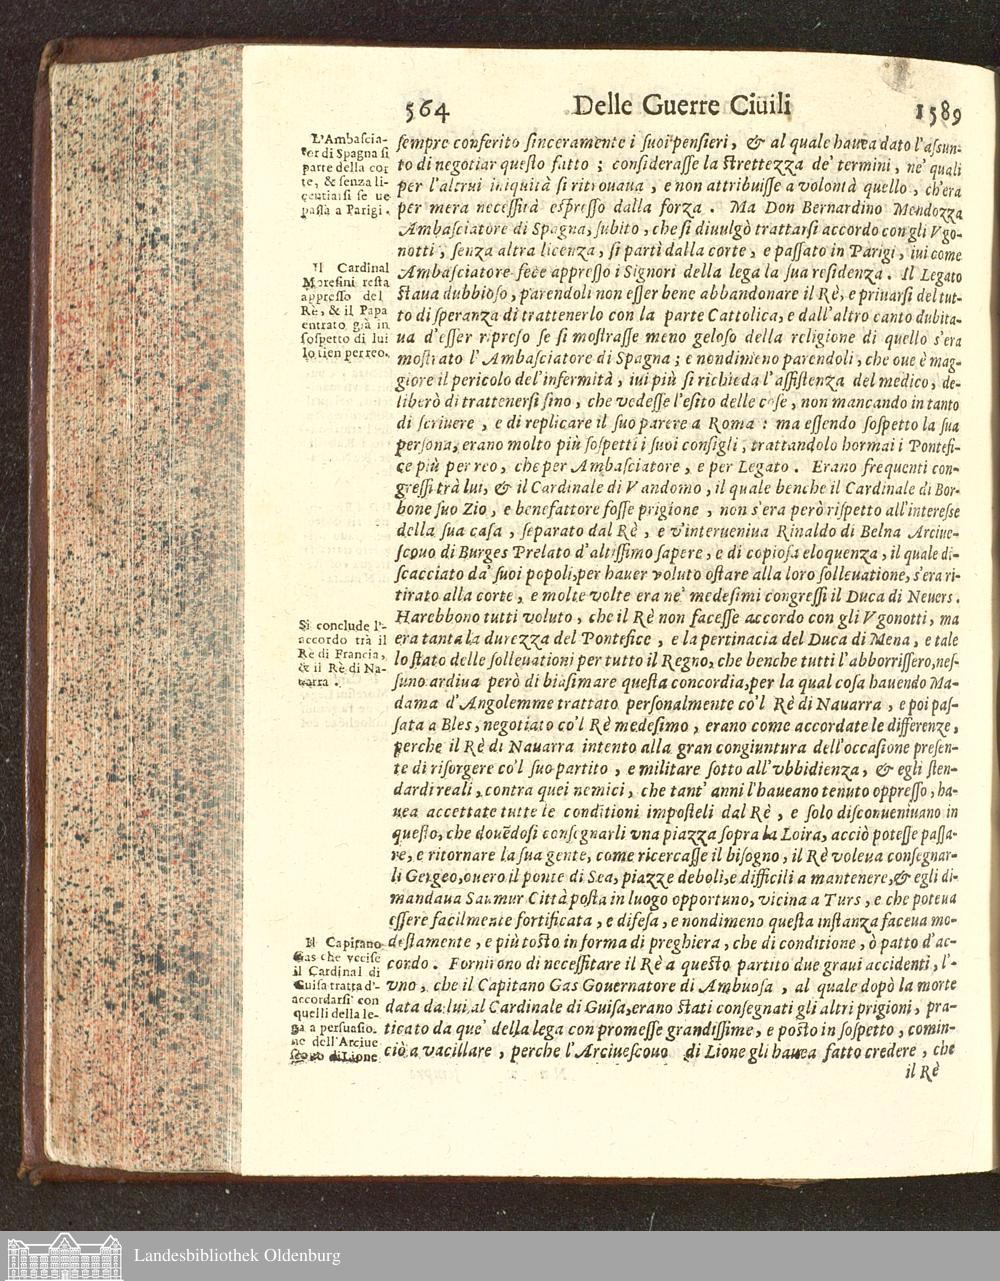 564 Delle Guerre Ciuili 1589
L'Ambascia-
tor di Spagna si
parte della cor
te, & senza li-
centiarsi se ue
passa a Parigi.
Il Cardinal
Moresini resta
appresso del
Rè, & il Papa
entrato già in
sospetto di lui
lo tien per reo.
Si conclude l'-
accordo trà il
Rè di Francia,
& il Rè di Na-
uarra.
Il Capitano
Gas che vccise
il Cardinal di
Guisa tratta d'-
accordarsi con
quelli della le-
ga a persuasio-
ne dell'Arciue
scouo di Lione
sempre conferito sinceramente i suoi pensieri, & al quale hauea dato l'assun-
to di negotiar questo fatto; considerasse la strettezza de' termini, ne' quali
per l'altrui iniquità si ritrouaua, e non attribuisse a volontà quello, ch'era
per mera necessità espresso dalla forza. Ma Don Bernardino Mendozza
Ambasciatore di Spagna, subito, che si diuulgò trattarsi accordo con gli Vgo-
notti, senza altra licenza, si partì dalla corte, e passato in Parigi, iui come
Ambasciatore fece appresso i Signori della lega la sua residenza. Il Legato
staua dubbioso, parendoli non esser bene abbandonare il Rè, e priuarsi del tut-
to di speranza di trattenerlo con la parte Cattolica, e dall'altro canto dubita-
ua d'esser ripreso se si mostrasse meno geloso della religione di quello s'era
mostrato l'Ambasciatore di Spagna; e nondimeno parendoli, che oue è mag-
giore il pericolo del'infermità, iui più si richieda l'assistenza del medico, de-
liberò di trattenersi sino, che vedesse l'esito delle cose, non mancando in tanto
di scriuere, e di replicare il suo parere a Roma: ma essendo sospetto la sua
persona, erano molto più sospetti i suoi consigli, trattandolo hormai i Pontefi-
ce più per reo, che per Ambasciatore, e per Legato. Erano frequenti con-
gressi trà lui, & il Cardinale di Vandomo, il quale benche il Cardinale di Bor-
bone suo Zio, e benefattore fosse prigione, non s'era però rispetto all'interesse
della sua casa, separato dal Rè, e v'interueniua Rinaldo di Belna Arciue-
scouo di Burges Prelato d'altissimo sapere, e di copiosa eloquenza, il quale di-
scacciato da' suoi popoli, per hauer voluto ostare alla loro solleuatione, s'era ri-
tirato alla corte, e molte volte era ne' medesimi congressi il Duca di Neuers.
Harebbono tutti voluto, che il Rè non facesse accordo con gli Vgonotti, ma
era tanta la durezza del Pontefice, e la pertinacia del Duca di Mena, e tale
lo stato delle solleuationi per tutto il Regno, che benche tutti l'abborrissero, nes-
suno ardiua però di biasimare questa concordia, per la qual cosa hauendo Ma-
dama d'Angolemme trattato personalmente co'l Rè di Nauarra, e poi pas-
sata a Bles, negotiato co'l Rè medesimo, erano come accordate le differenze,
perche il Rè di Nauarra intento alla gran congiuntura dell'occasione presen-
te di risorgere co'l suo partito, e militare sotto all'vbbidienza, & egli sten-
dardi reali, contra quei nemici, che tant' anni l'haueano tenuto oppresso, ha-
uea accettate tutte le conditioni imposteli dal Rè, e solo disconueniuano in
questo, che douēdosi consegnarli vna piazza sopra la Loira, acciò potesse passa-
re, e ritornare la sua gente, come ricercasse il bisogno, il Rè voleua consegnar-
li Gergeo, ouero il ponte di Sea, piazze deboli, e difficili a mantenere, & egli di-
mandaua Saumur Città posta in luogo opportuno, vicina a Turs, e che poteua
essere facilmente fortificata, e difesa, e nondimeno questa instanza faceua mo-
destamente, e più tosto in forma di preghiera, che di conditione, ò patto d'ac-
cordo. Fornirono di necessitare il Rè a questo partito due graui accidenti, l'-
vno, che il Capitano Gas Gouernatore di Ambuosa, al quale dopò la morte
data da lui al Cardinale di Guisa, erano stati consegnati gli altri prigioni, pra-
ticato da que' della lega con promesse grandissime, e posto in sospetto, comin-
ciò a vacillare, perche l'Arciuescouo di Lione gli hauea fatto credere, che
il Rè
Landesbibliothek Oldenburg